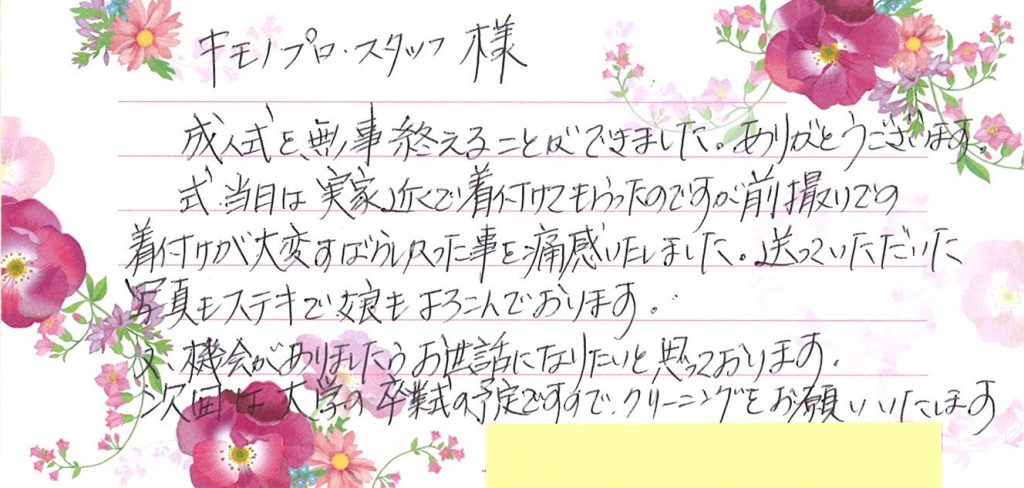 キモノプロ・スタッフ 様
成人式を、無事終えることができました。ありがとうございます。
式当日は実家近くで着付けてもらったのですが前撮りでの
着付けが大変すばらしかった事を痛感いたしました。送っていただいた
写真もステキで娘もよろこんでおります。
又、機会がありましたらお世話になりたいと思っております。
次回は大学の卒業式の予定ですので、クリーニングをお願いいたします